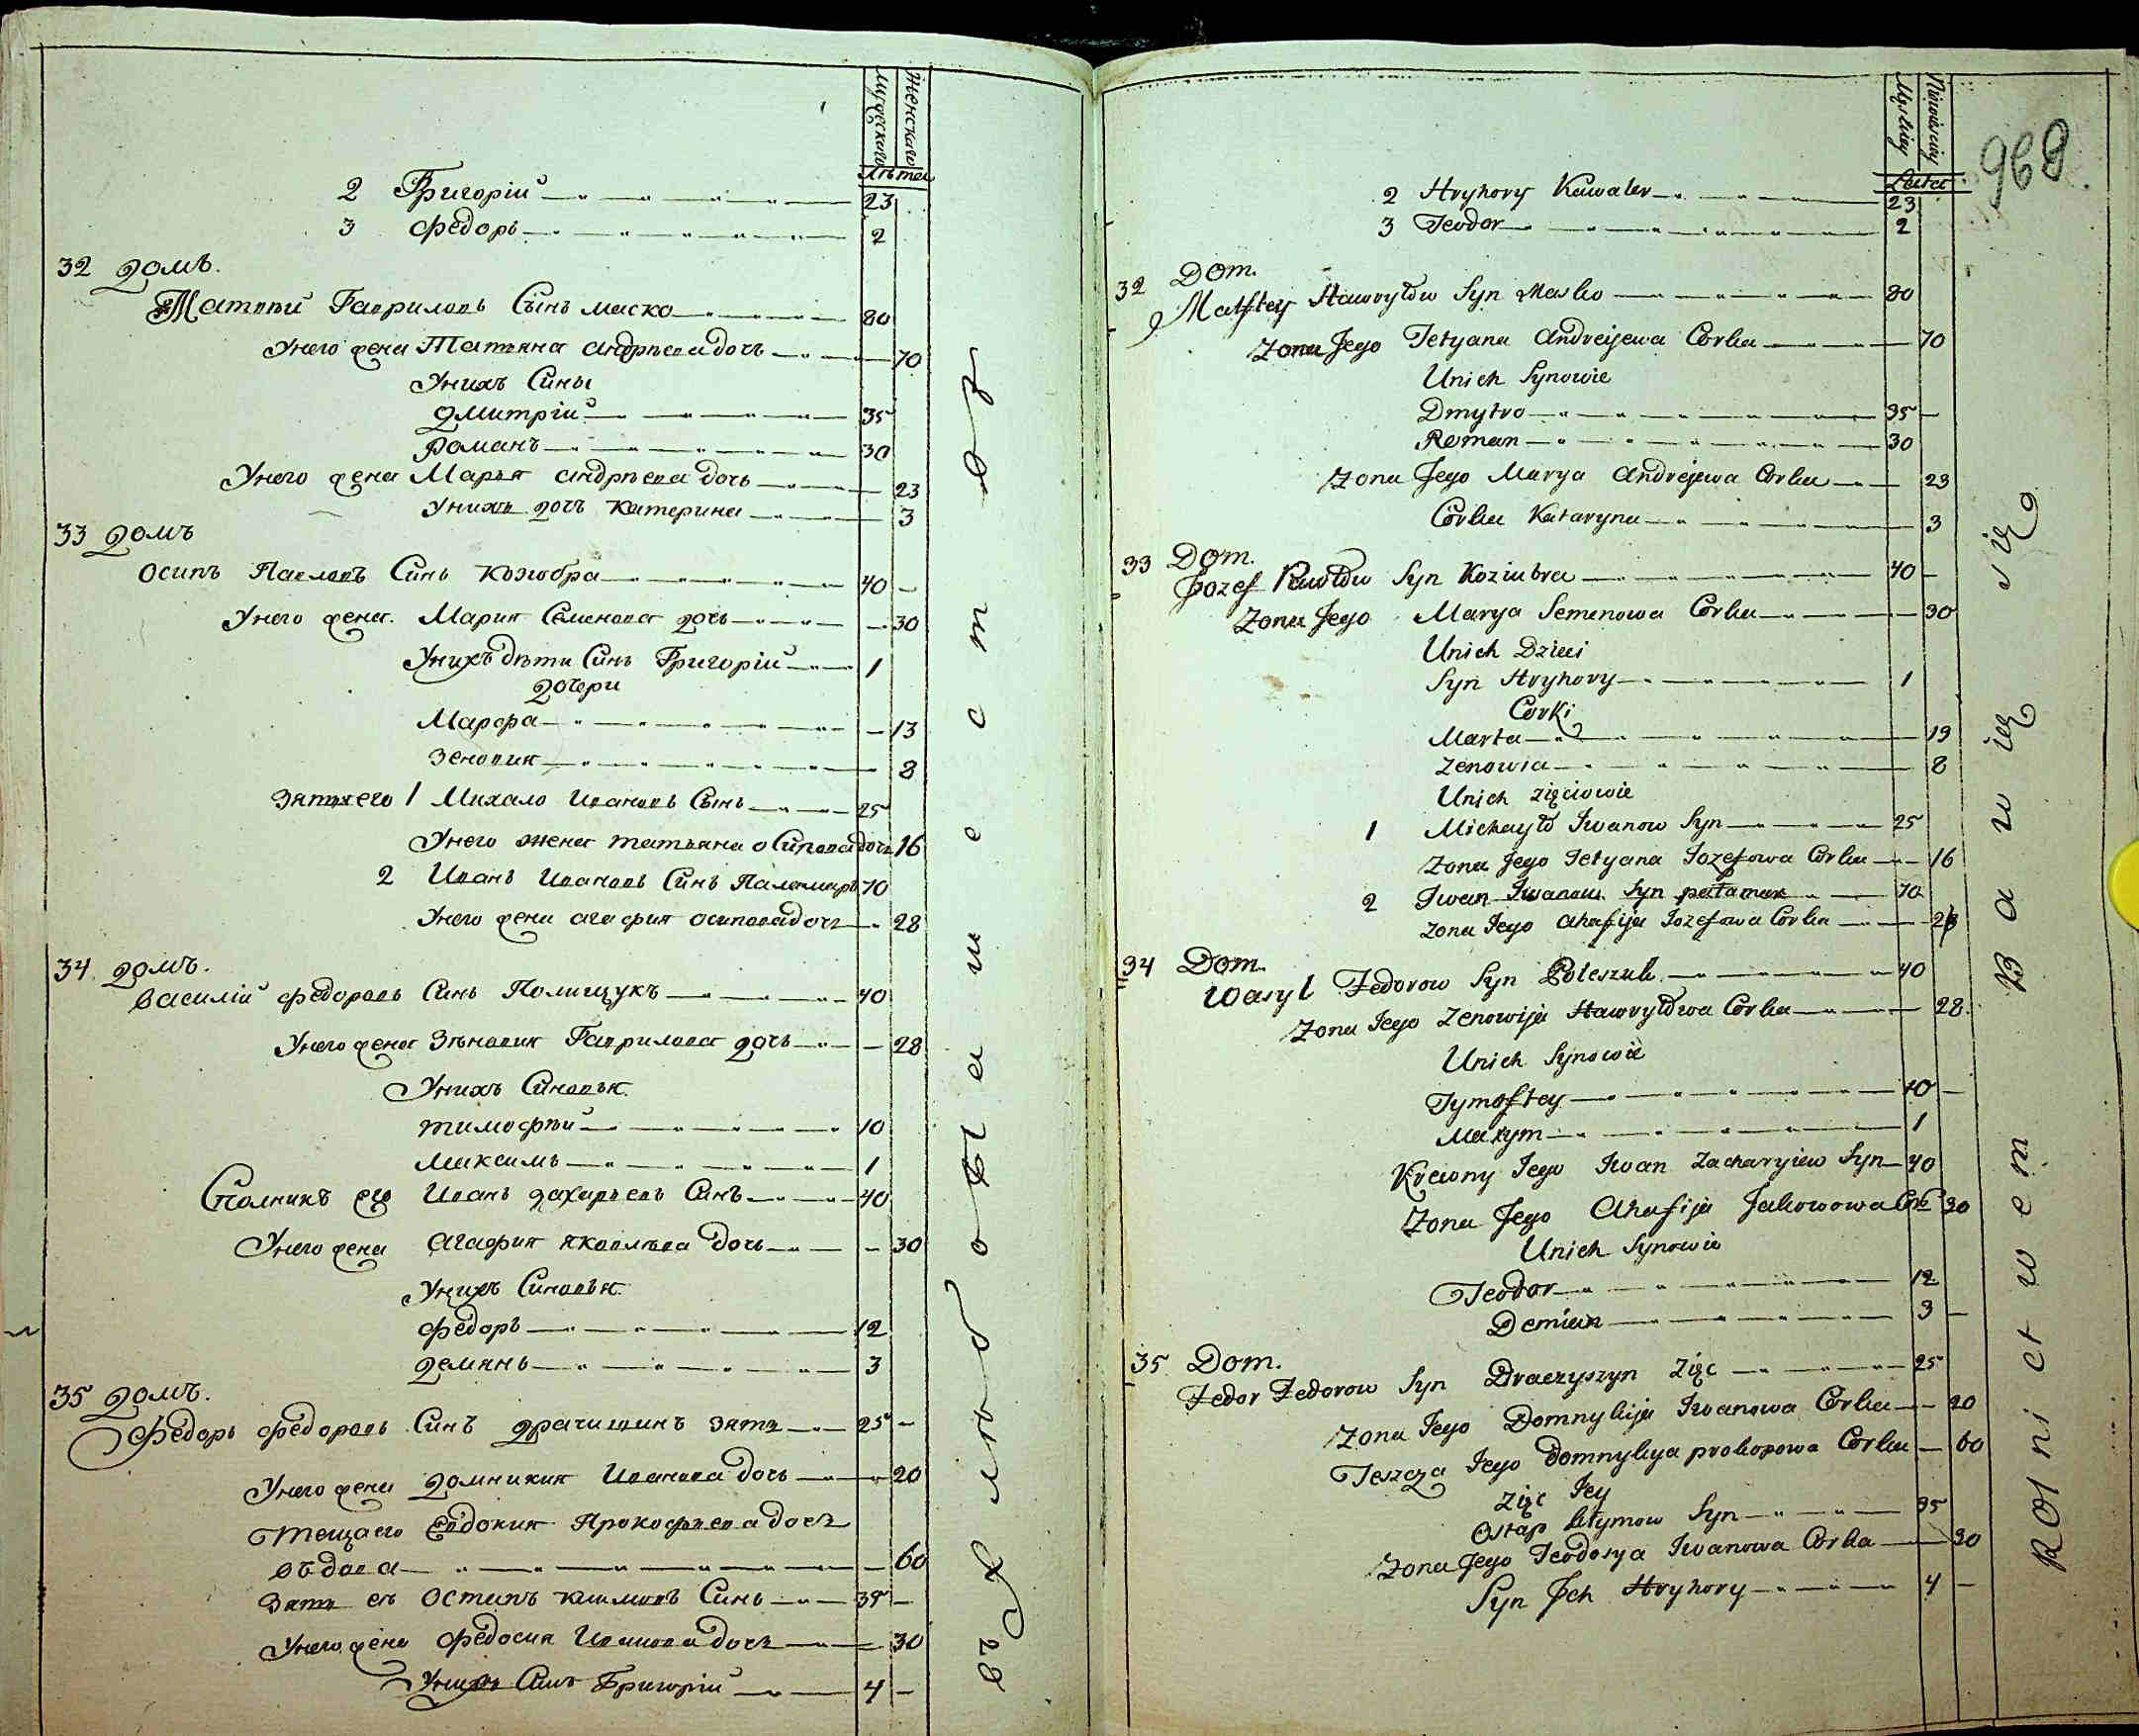 Мужеского
Женскаго
Лѣта
2 Григорій 23
3 Федоръ 2
32 Домъ.
Матвѣй Гавриловъ Сынъ Маско 80
Унего жена Татьяна Андрѣева дочь 70
Унихъ Сины
Дмитрій 35
Романъ 30
Унего жена Марья Андрѣева дочь 23
Унихъ дочь Катерина 3
33 Домъ
Осипъ Павловъ Синъ Козюбра 40
Унего жена. Мария Семенова дочь 30
Унихъ дѣти Синъ Григорій 1
Дочери
Марфа 13
Зеновия 8
Зятьего 1 Михало Ивановъ Сынъ 25
Унего жена Татьяна Осипова дочь 16
2 Иванъ Ивановъ Синъ Паламаръ 70
Унего жена Агафия Осипова дочь 28
34 Домъ.
Василій Федоровъ Синъ Полищукъ 40
Унего жена Зѣновия Гаврилова дочь 28
Унихъ Синовья
Тимофѣй 10
Максимъ 1
Сполникъ его Иванъ Захарьевъ Синъ 40
Унего жена Агафия Яковлѣва дочь 30
Унихъ Синовья
Федоръ 12
Демянъ 3
35 Домъ.
Федоръ Федоровъ Синъ Драчишинъ зять 25
Унего жена Домникия Иванова дочь 20
Тещаего Евдокия Прокофьева дочь
Вѣдова 60
Зять еѣ Остапъ Климовъ Синъ 35
Унего жена Федосия Иванова дочь 30
Унихъ Синъ Григорій 4
968
Męskiey
Niewiesciey
Lata
2 Hryhory Kawaler 23
3 Teodor 2
32 Dom.
Matftey Hawryłow Syn Masko 80
Zona Jego Tetyana Andreijewa Corka 70
Unich Synowie
Dmytro 35
Roman 30
Zona Jego Marya Andrejewa Corka 23
Corka Kataryna 3
33 Dom.
Jozef Pawłow Syn Koziubra 40
Zona Jego Marya Semenowa Corka 30
Unich Dzieci
Syn Hryhory 1
Corki
Marta 13
Zenowia 8
Unich Zięciowie
1 Michayło Iwanow Syn 25
Zona Jego Tetyana Jozefowa Corka 16
2 Iwan Iwanow Syn pałamar 70
Zona Jego Ahafija Jozefowa Corka 28
34 Dom.
Wasyl Fedorow Syn Poleszuk 40
Zona Jego Zenowija Hawryłowa Corka 28
Unich Synowie
Tymoftey 10
Maxym 1
Krewny Jego Iwan Zacharyiew Syn 40
Zona Jego Ahafija Jakowowa Cork 30
Unich Synowie
Teodor 12
Demian 3
35 Dom.
Fedor Fedorow Syn Draczyszyn Zięc 25
Zona Jego Domnykija Iwanowa Corka 20
Teszcza Jego Domnykya prokopowa Corka 60
Zięc Jey
Ostap Klymow Syn 35
Zona Jego Teodosya Iwanowa Corka 30
Syn Jch Hryhory 4
Rolnictwem Bawią się